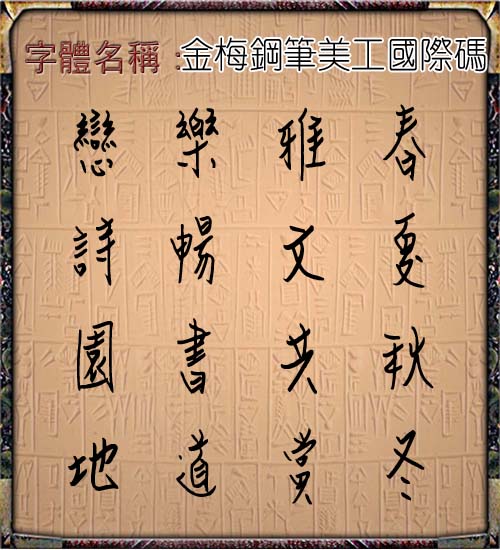 字體名稱：金梅鋼筆美工國際碼
春夏秋冬
雅文共賞
樂暢書道
戀詩園地